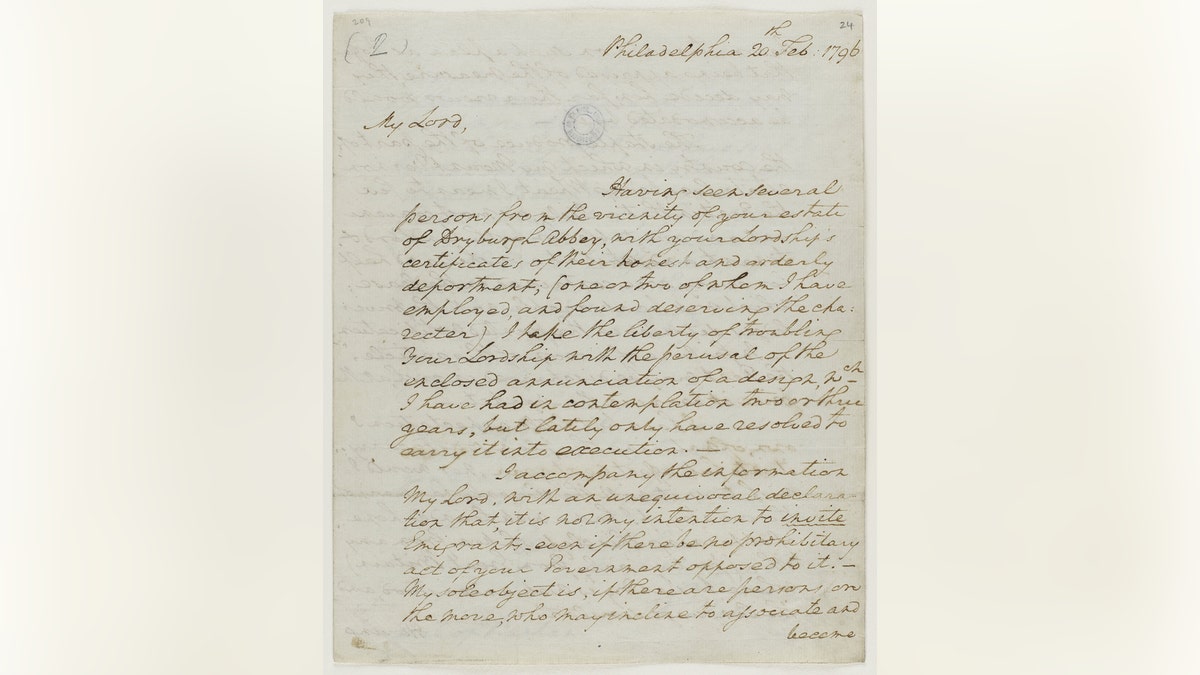 209
24
(2)
Philadelphia 20th Feb: 1796
My Lord,
Having seen several
persons from the vicinity of your estate
of Dryburgh Abbey, with your Lordship's
certificates of their honest and orderly
deportment; (one or two of whom I have
employed, and found deserving the cha:
recter) I take the liberty of troubling
Your Lordship with the perusal of the
enclosed annunciation of a design, wch
I have had in contemplation two or three
years, but lately only have resolved to
carry it into execution. —
I accompany the information
My Lord, with an unequivocal declara-
tion that, it is not my intention to invite
Emigrants—even if there be no prohibitary
act of your Government opposed to it. —
My sole object is, if there are persons on
the move, who may incline to associate and
become